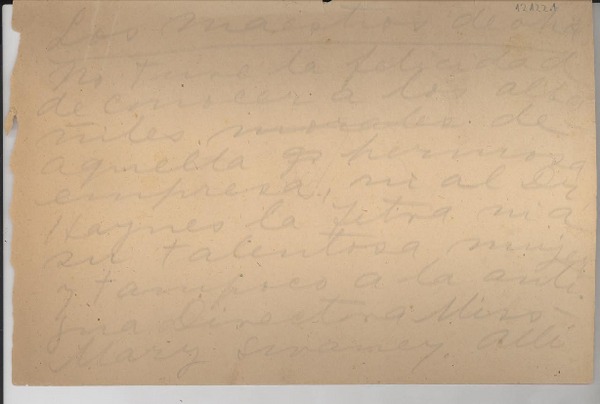 Los maestros de
No tuve la felicidad
de conocer a los altos
miles morales de
aquella gr hermosa
empresa, ni al Dr
Haynes la Tetra ni a
su talentosa mujer
y tampoco a la anti
gua Directora Miss
Mary Sweeney. Allí